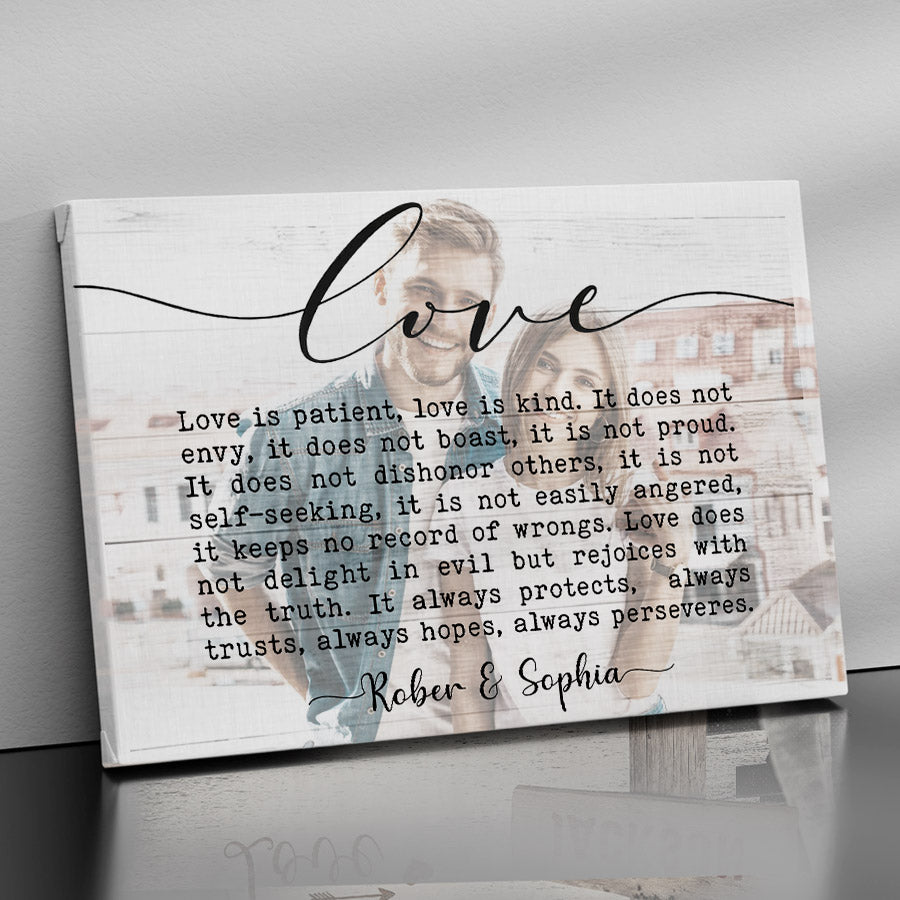 love
Love is patient, love is kind. It does not
envy, it does not boast, it is not proud.
It does not dishonor others, it is not
self-seeking, it is not easily angered,
it keeps no record of wrongs. Love does
not delight in evil but rejoices with
the truth. It always protects, always
trusts, always hopes, always perseveres.
Rober & Sophia
Love
JACKSON